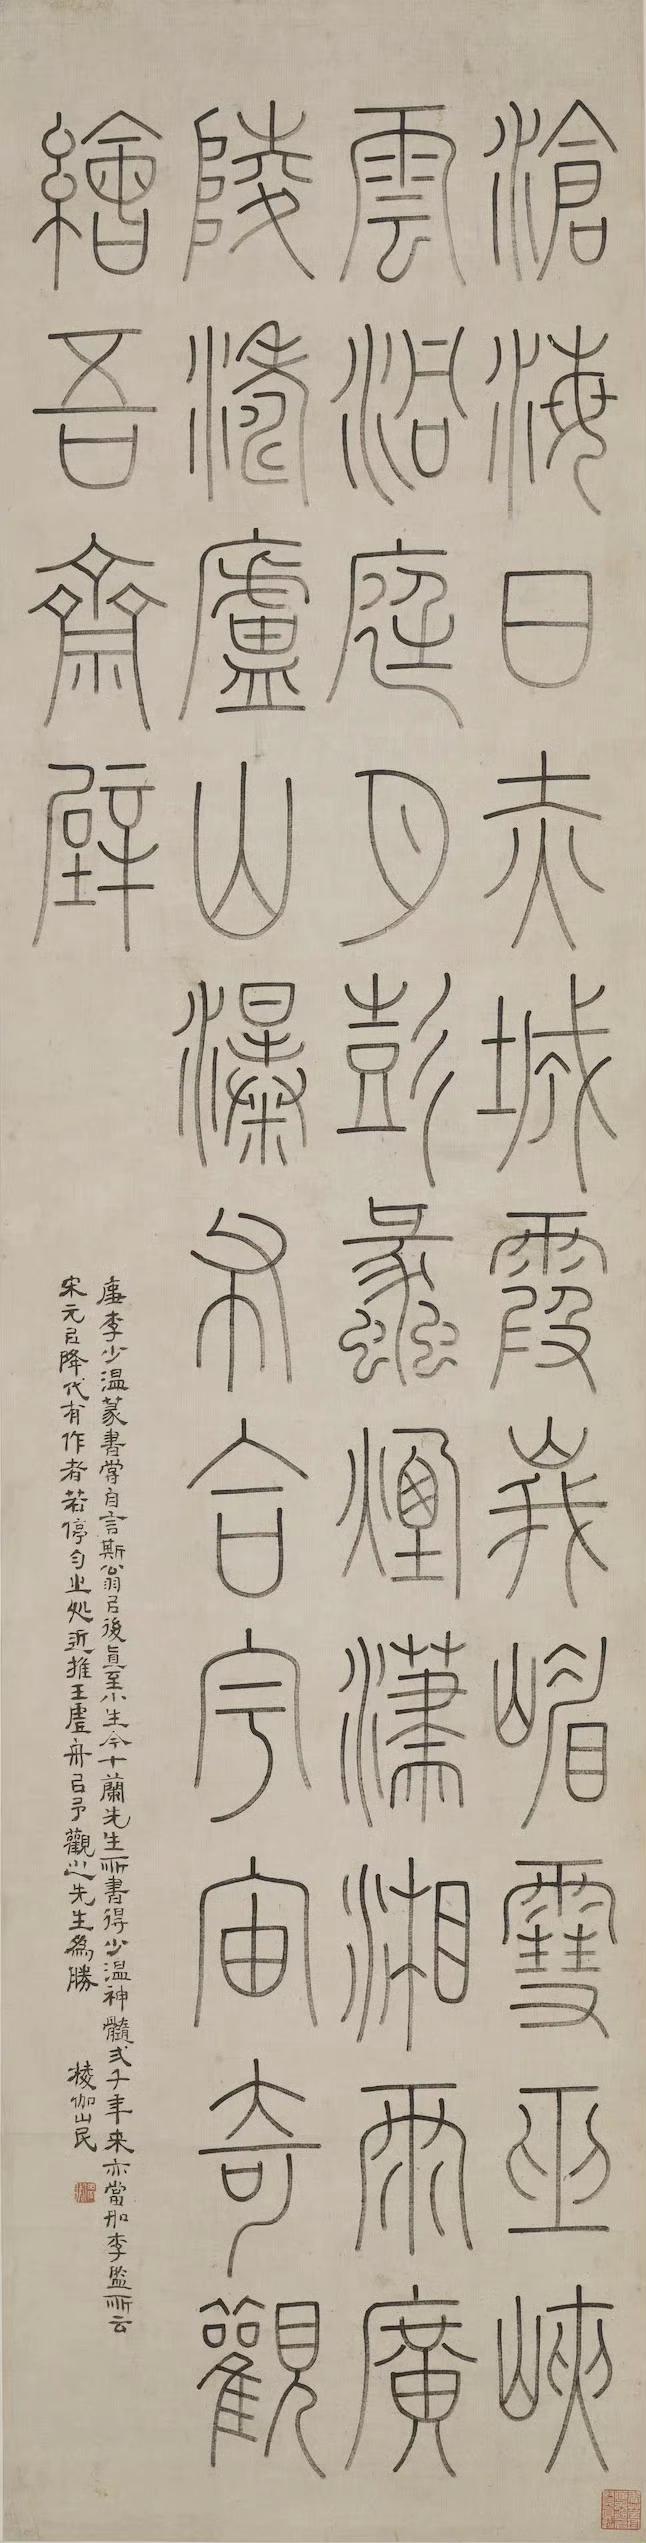 滄海日赤城霞峩嵋雪巫峽
雲洞庭月彭蠡煙瀟湘雨廣
陵濤廬山瀑布合宇宙奇觀
繪吾齋壁
唐李少温篆書嘗自言斯翁㠯後直至小生今十蘭先生所書得少温神髓弍千年来亦當如李監所云
宋元㠯降代有作者若停匀之処近推王虛舟㠯予觀之先生為勝
楞伽山民